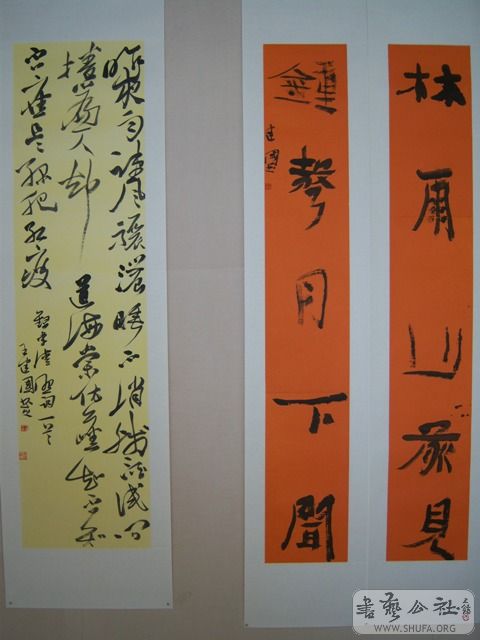 林雨山前見
鐘聲月下聞
建國書
昨夜雨疏風驟濃睡不消殘酒試問
捲簾人却道海棠依舊知否知
否應是綠肥紅瘦
李清照詞一首
王建國書
書藝公社
WWW.SHUFA.ORG